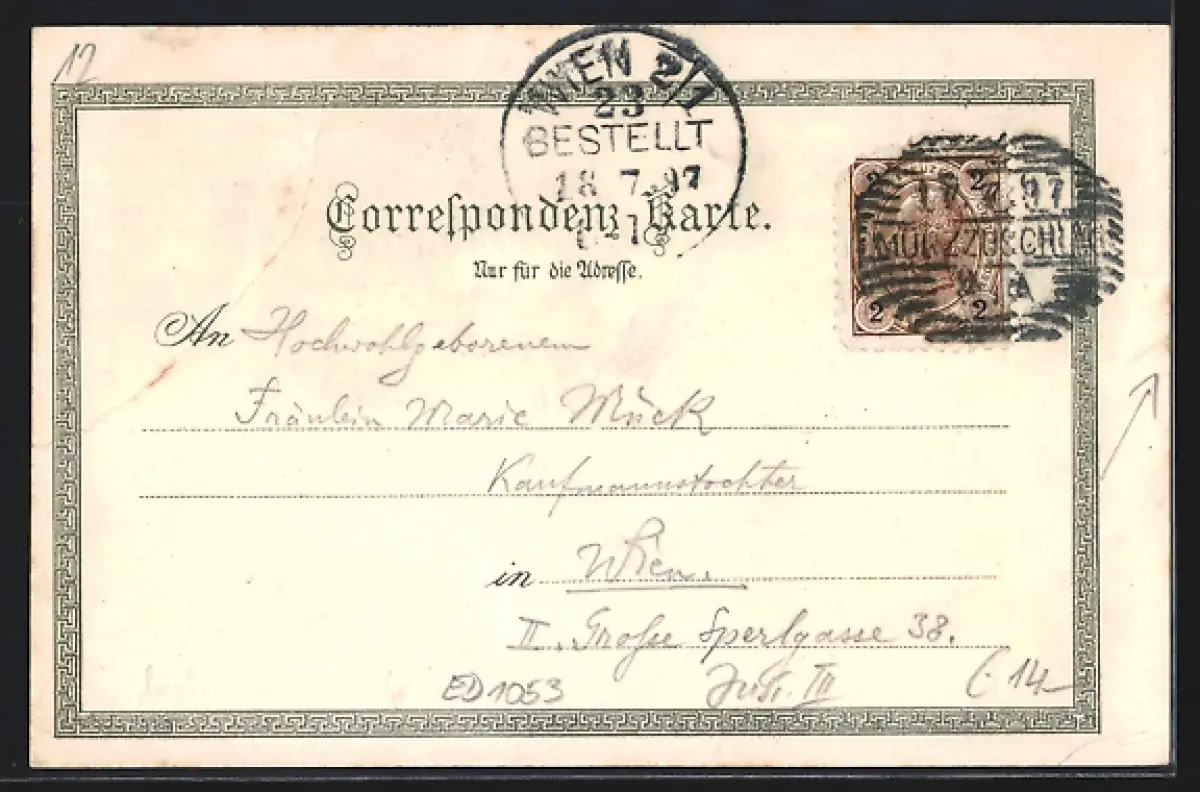 12
WIEN 2/1
23
BESTELLT
18 7.97
Correſpondenz-Karte.
Nur für die Adreſſe.
2 2
17.7.97
MÜRZZUSCHLAG
2 2
An Hochwohlgeborenem
Fräulein Marie Mück
Kaufmannstochter
in Wien.
II. Große Sperlgasse 38.
ED1053
14